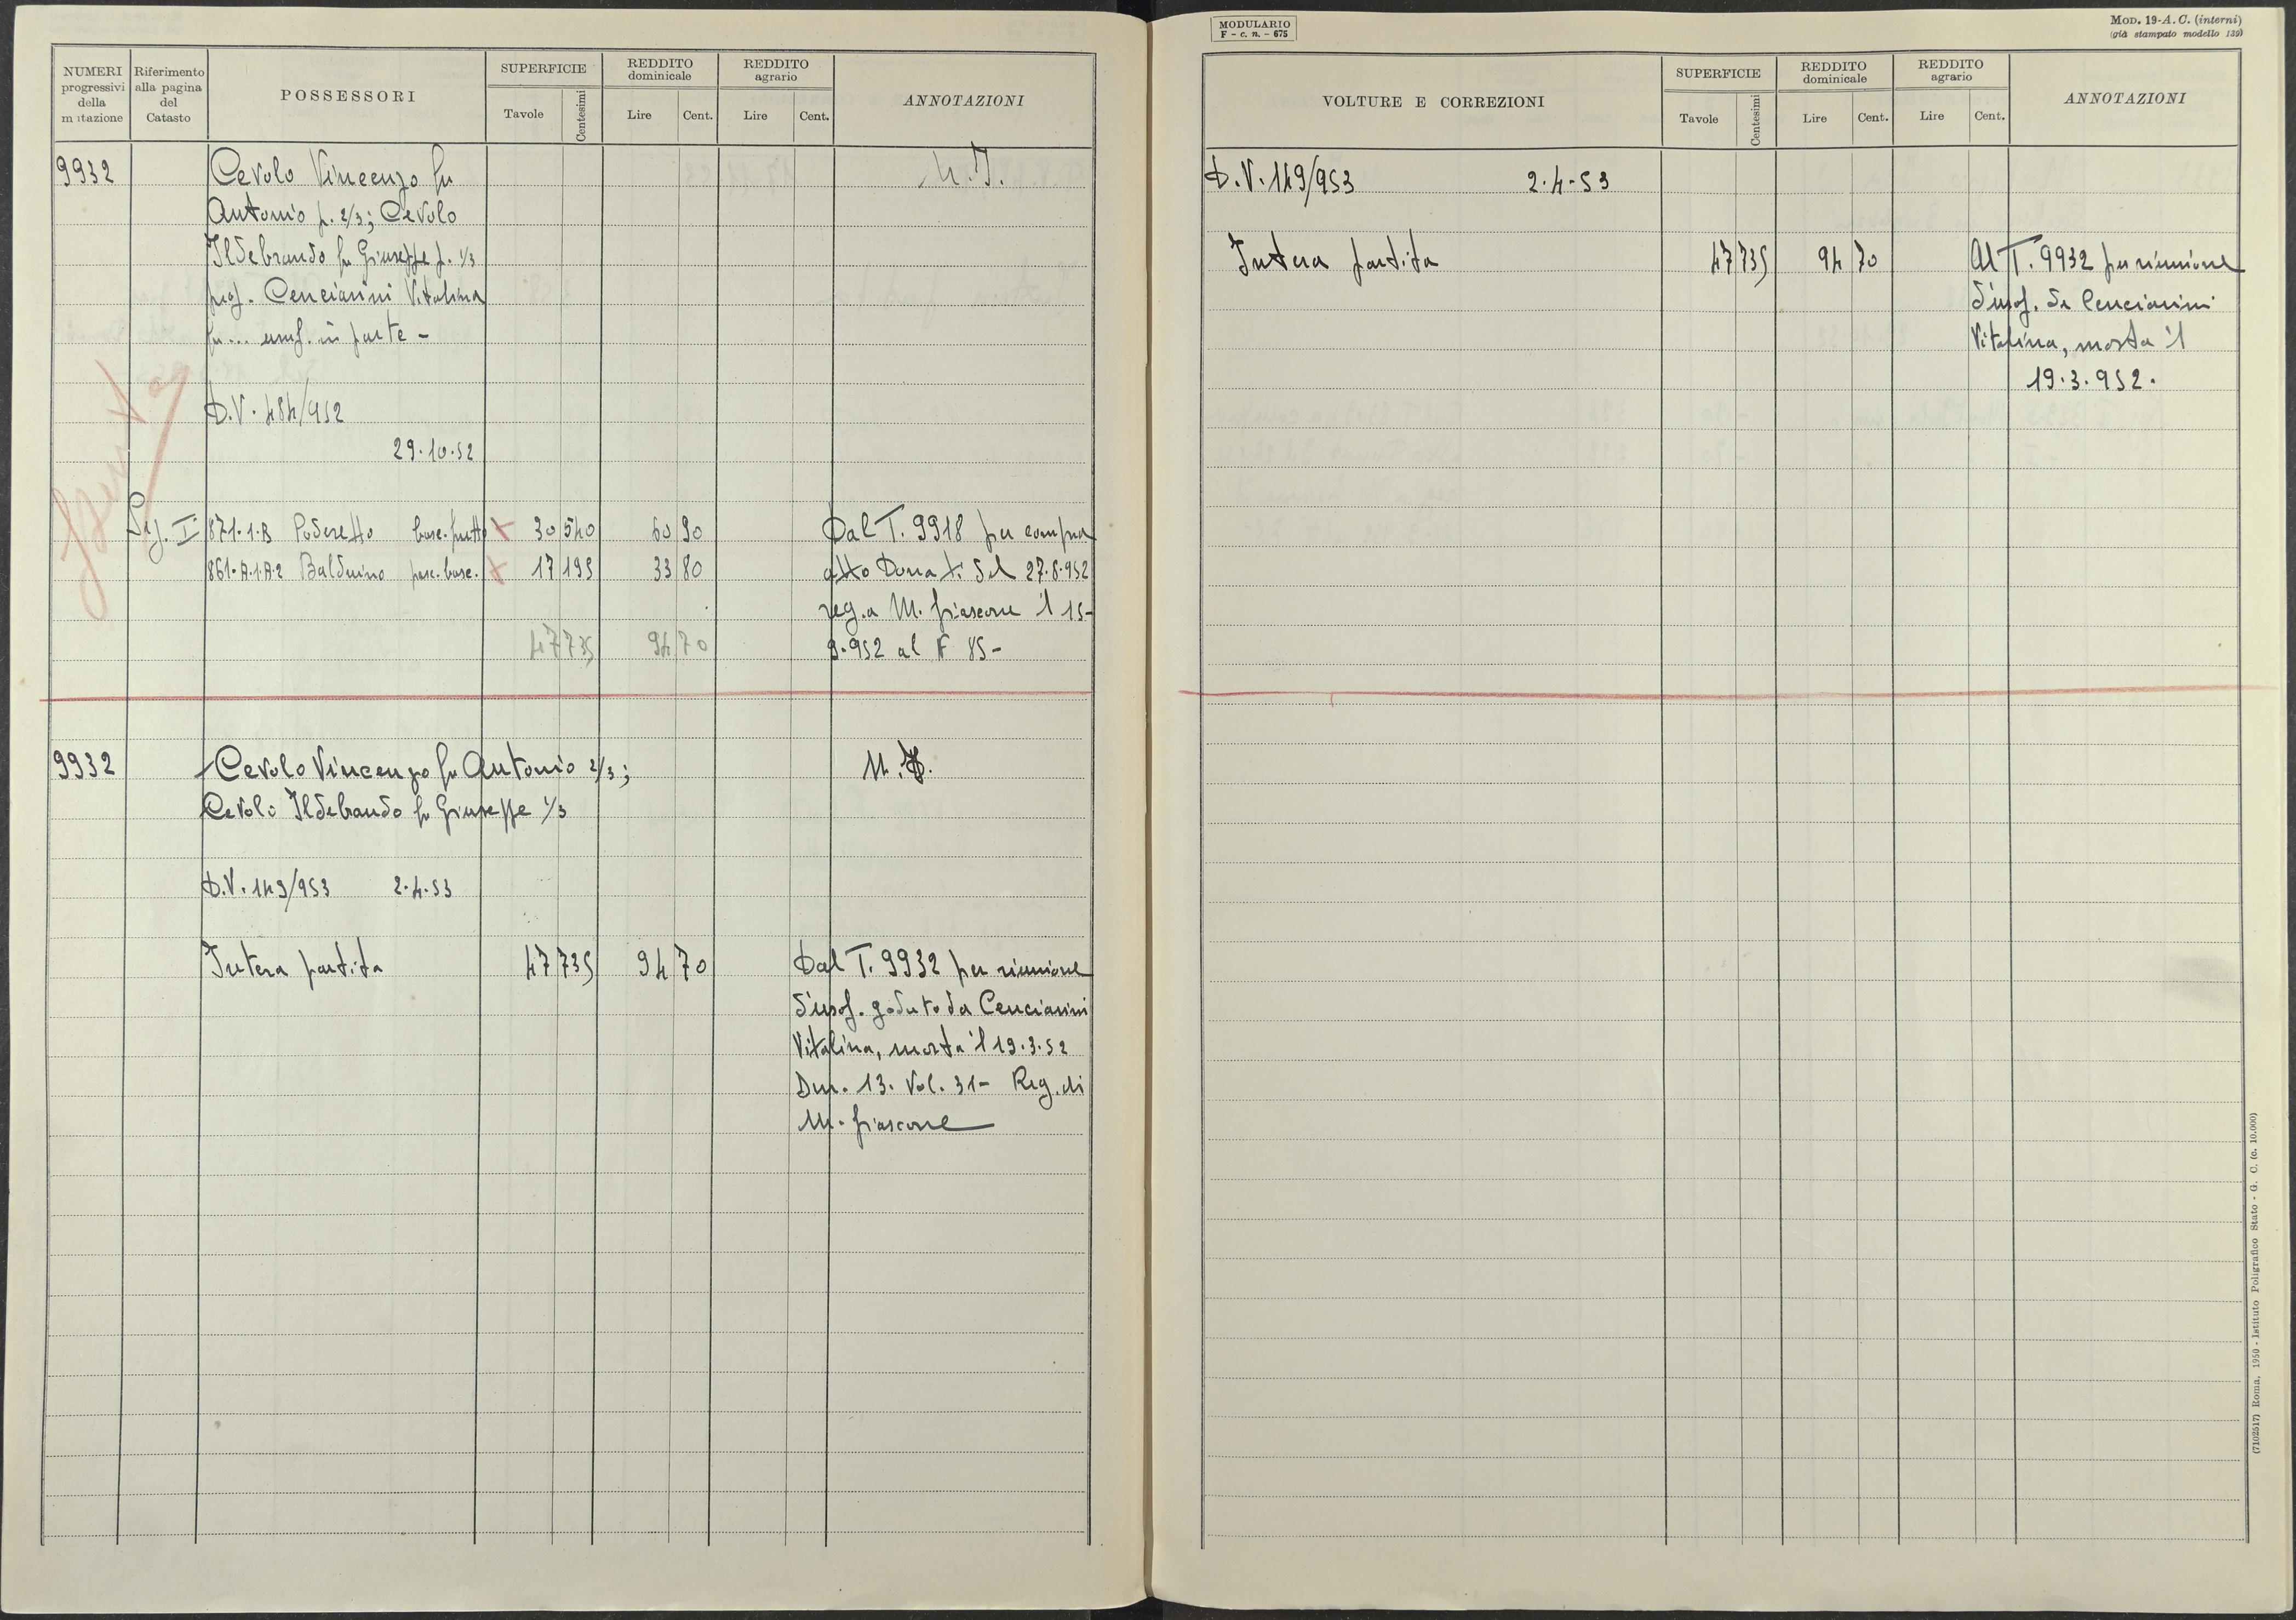 NUMERI progressivi della mutazione
Riferimento alla pagina del Catasto
POSSESSORI
SUPERFICIE
Tavole
Centesimi
REDDITO dominicale
Lire
Cent.
REDDITO agrario
Lire
Cent.
ANNOTAZIONI
9932
Cevolo Vincenzo fu
Antonio p. 2/3; Cevolo
Ildebrando fu Giuseppe p. 1/3
prop. Cenciarini Vitalina
fu... usuf. in parte -
D.V. 484/952
29.10.52
I 871.1.B Poderetto bosc. frutto 30 540 60 90 Dal T. 9918 per compra
861.A.1.A.2 Balduino pasc. bosc. 17 195 33 80 atto Donati del 27.8.952
reg. a M. fiascone il 15-
47 735 94 70 9.952 al N 85-
9932 Cevolo Vincenzo fu Antonio 2/3;
Cevolo Ildebrando fu Giuseppe 1/3
D.V. 149/953 2.4.53
Intera partita 47 735 94 70 Dal T. 9932 per riunione
d'usof. goduto da Cenciarini
Vitalina, morta il 19.3.52
Den. 13. Vol. 31- Reg. di
M. fiascone
MODULARIO
F - c. n. - 675
MOD. 19-A. C. (interni)
(già stampato modello 139)
VOLTURE E CORREZIONI
SUPERFICIE
Tavole
Centesimi
REDDITO dominicale
Lire
Cent.
REDDITO agrario
Lire
Cent.
ANNOTAZIONI
D.V. 149/953 2.4.53
Intera partita 47 735 94 70 Al T. 9932 per riunione
d'usof. da Cenciarini
Vitalina, morta il
19.3.952.
(7102517) Roma, 1950 - Istituto Poligrafico Stato - G. C. (c. 10.000)